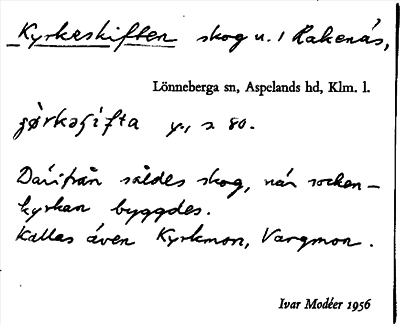 Kyrkeskiften skog u. / Rakenäs,
Lönneberga sn, Aspelands hd, Klm. l.
y., s 80.
Därifrån såldes skog, när socken-
kyrkan byggdes.
Kallas även Kyrkmon, Vargmon.
Ivar Modéer 1956